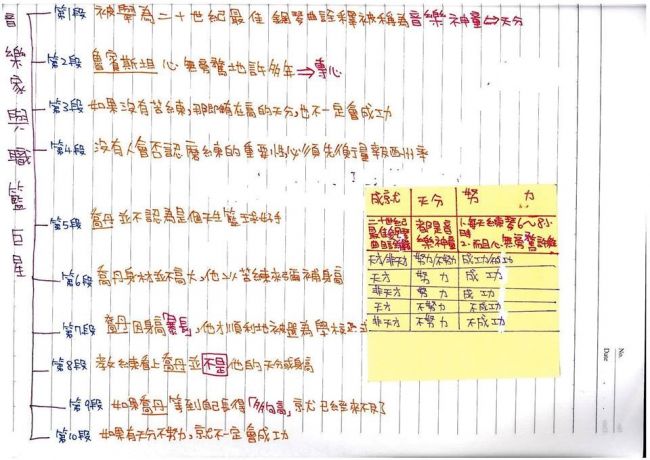 音樂家與職籃巨星
第1段 被譽為二十世紀最佳鋼琴曲詮釋被稱為音樂神童⇔天分
第2段 魯賓斯坦心無旁騖地許多年⇒專心
第3段 如果沒有苦練,那即時在高的天分,也不一定會成功
第4段 沒有人會否認磨練的重要性,必須先衡量
第5段 喬丹並不認為是個天生籃球好手
第6段 喬丹身材並不高大,他以苦練來彌補身高
第7段 喬丹因身高「暴長」,他才順利地被選為學校
第8段 教練看上喬丹並不是他的天分或身高
第9段 如果喬丹等到自己長得「夠高」,就已經來不及了
第10段 如果有天分不努力,就不一定會成功
成就 天分 努力
二十世紀最佳鋼琴曲詮釋 都是音樂神童 1.每天練琴6~8小時 2.而且心無旁騖
天才/非天才 努力/不努力 成功/
天才 努力 成功
非天才 努力 成功
天才 不努力 不成功
非天才 不努力 不成功
No.
Date